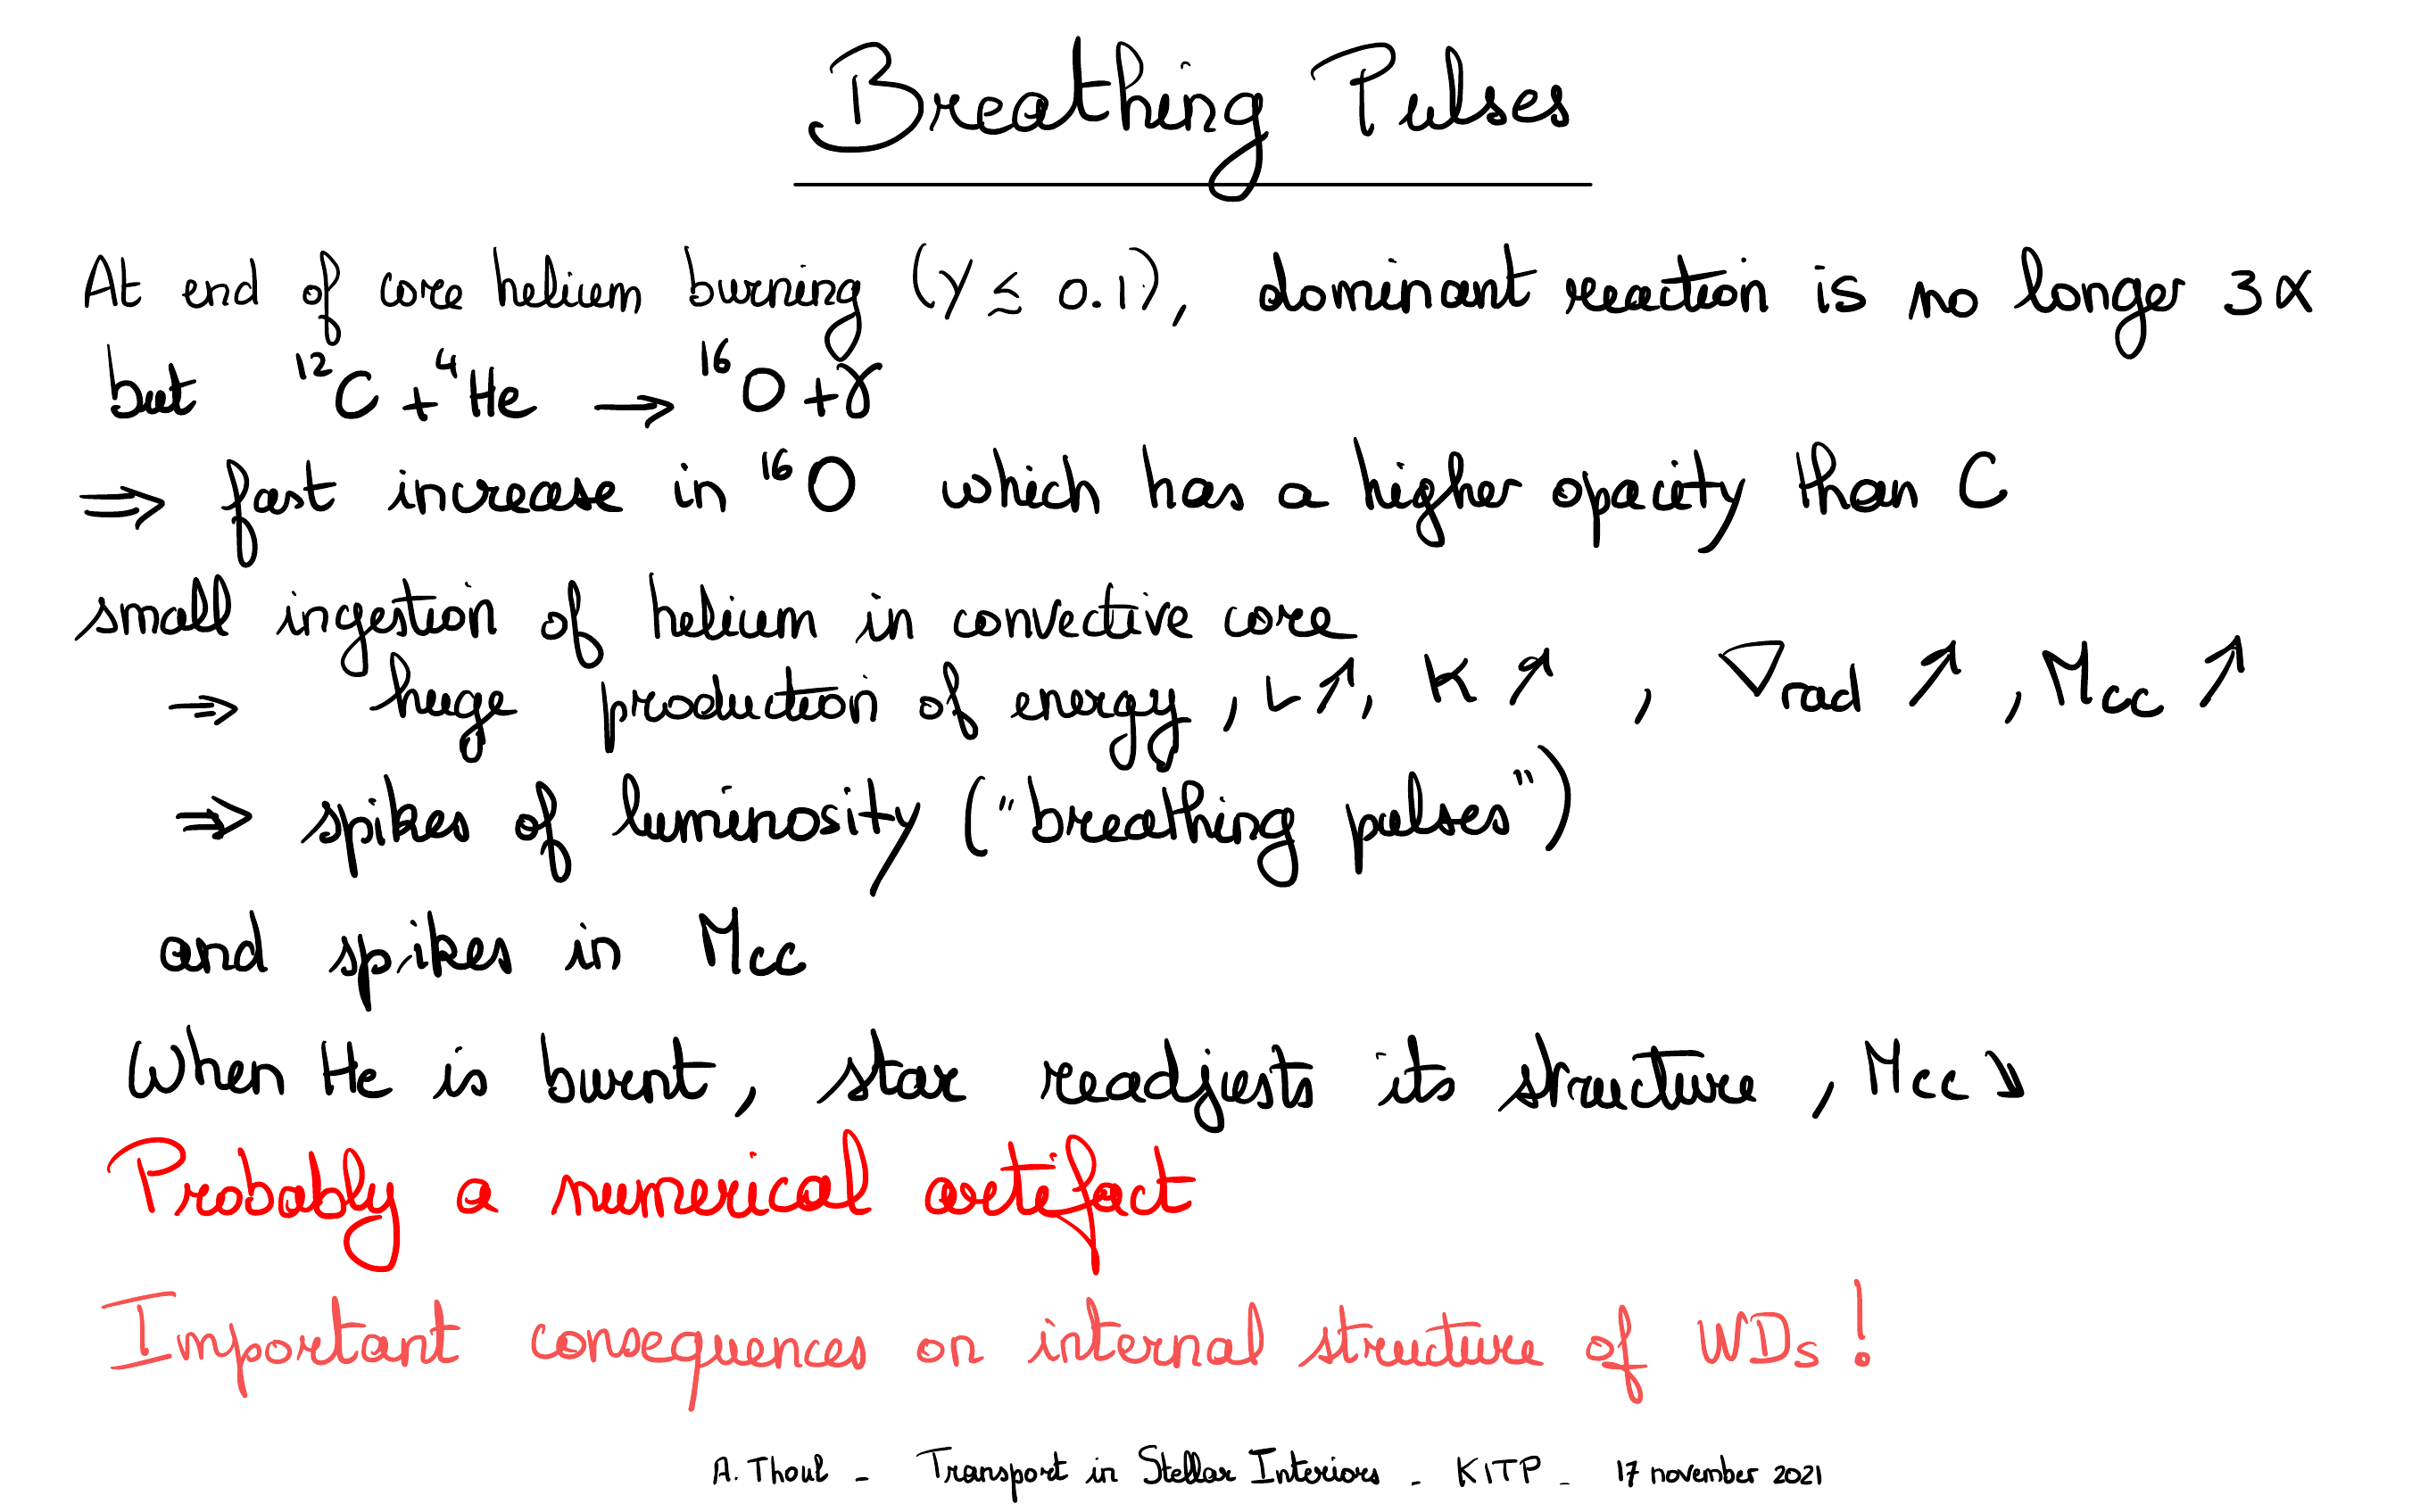 Breathing Pulses
At end of core helium burning (Y ≲ 0.1), dominant reaction is no longer 3α
but ¹²C + ⁴He → ¹⁶O + γ
⇒ fast increase in ¹⁶O which has a higher opacity than C
small ingestion of helium in convective core
⇒ huge production of energy, L↗, κ↗, ∇rad ↗, Mcc ↗
⇒ spikes of luminosity ("breathing pulses")
and spikes in Mcc
When He is burnt, star readjusts its structure, Mcc ↘
Probably a numerical artefact
Important consequences on internal structure of WDs!
A. Thoul - Transport in Stellar Interiors - KITP - 17 november 2021